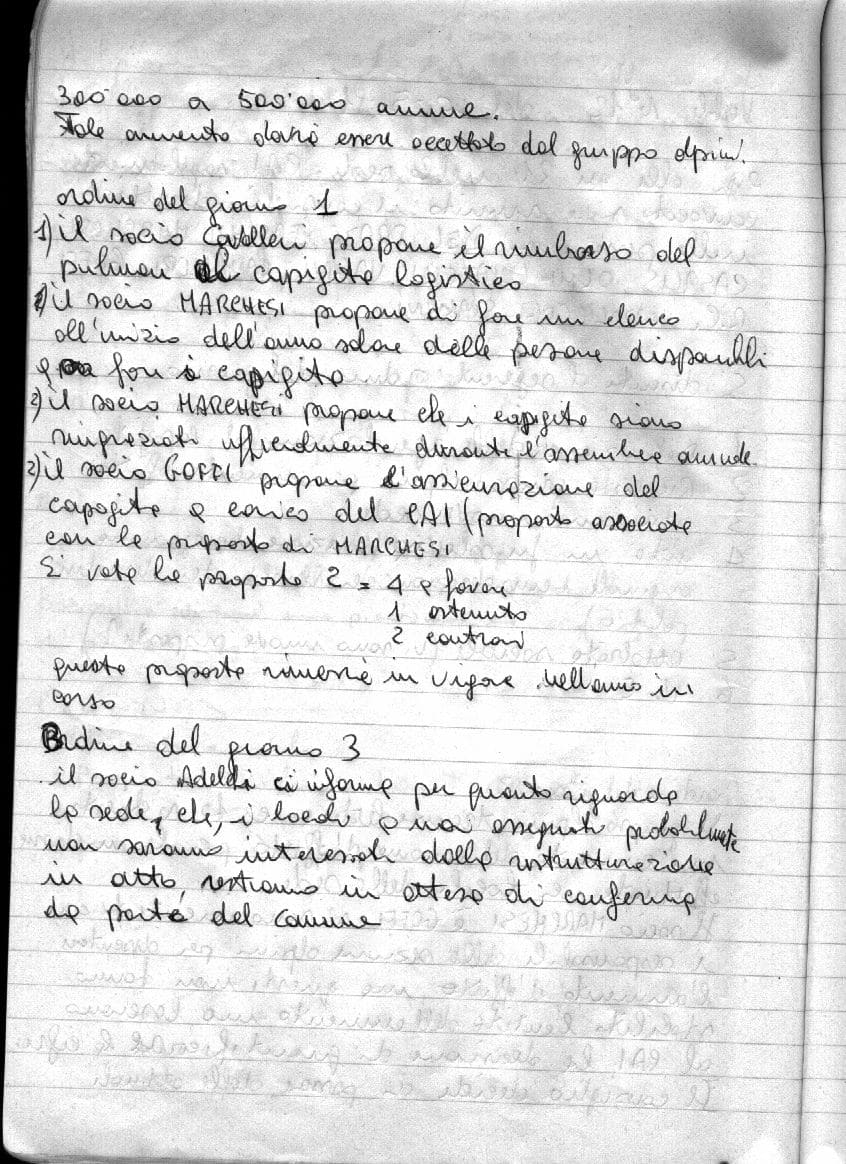 300'000 a 500'000 annue.
Tale aumento dovrà essere accettato dal gruppo alpini.
ordine del giorno 1
1) il socio Cavalleri propone il rimborso del
pulman al capigita logistico
2) il socio MARCHESI propone di fare un elenco
all'inizio dell'anno solare delle persone disponibili
a fare i capigita
2) il socio MARCHESI propone che i capigita siano
ringraziati ufficialmente durante l'assemblea annuale
2) il socio GOFFI propone l'assicurazione del
capogita a carico del CAI (proposta associata
con la proposta di MARCHESI
Si vota la proposta 2 = 4 a favore
1 astenuto
2 contrari
questa proposta rimarrà in vigore nell'anno in
corso
Ordine del giorno 3
il socio Adeldi ci informa per quanto riguarda
la sede, che, i locali a noi assegnati probabilmente
non saranno interessati dalla ristrutturazione
in atto, restiamo in attesa di conferma
da parte del comune